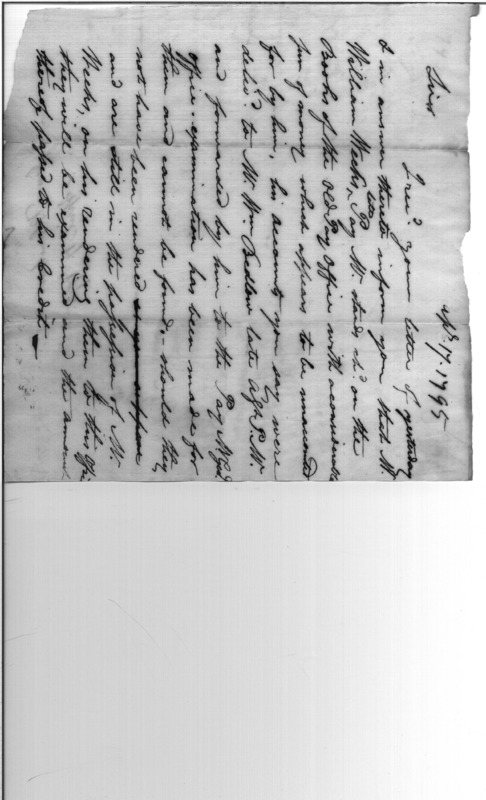 Apl. 17. 1795
Sirs
I rec'd your letter of yesterday
& in answer thereto inform you that Mr.
William Weeks, late Pay Mr. stands ch'd on the
Books of the old Pay Office with a considerable
Sum of money which appears to be unaccounted
for by him, his accounts you say were
deliv'd to Mr. Wm Bedlow late P. Mr.
and forwarded by him to the Pay M Genl
office - examination has been made for
them and cannot be found, - should they
not have been rendered
and are still in the possession of Mr.
Weeks, on his rendering them to this Offi
they will be examined and the amount
thereof passed to his Credit -